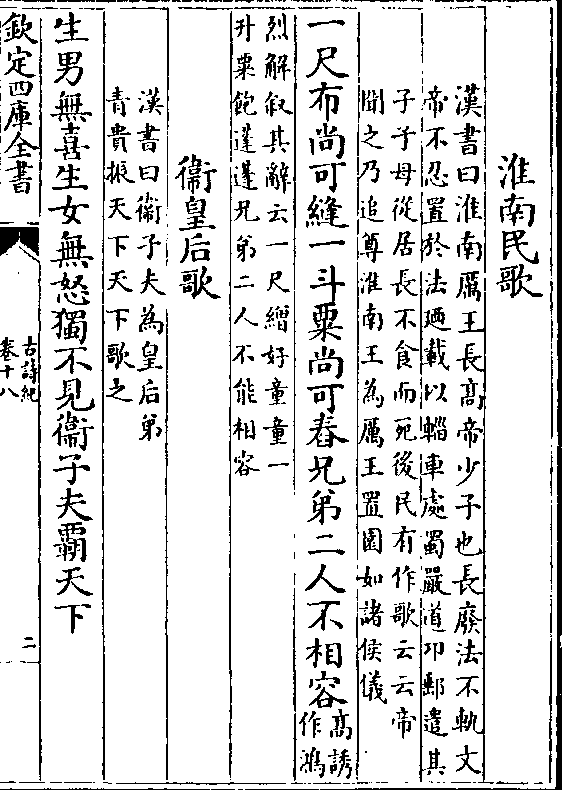 淮南民歌
漢書曰淮南厲王長高帝少子也長廢法不軌文
帝不忍置於法廼載以輜車處蜀嚴道卭郵遣其
子子母從居長不食而死後民有作歌云云帝
聞之乃追尊淮南王為厲王置園如諸侯儀
一尺布尚可縫一斗粟尚可舂兄弟二人不相容
高誘
作鴻
烈解叙其辭云一尺繒好童童一
升粟飽蓬蓬兄弟二人不能相容
衞皇后歌
漢書曰衞子夫為皇后弟
青貴振天下天下歌之
生男無喜生女無怒獨不見衞子夫霸天下
欽定四庫全書
古詩紀
卷十八
二